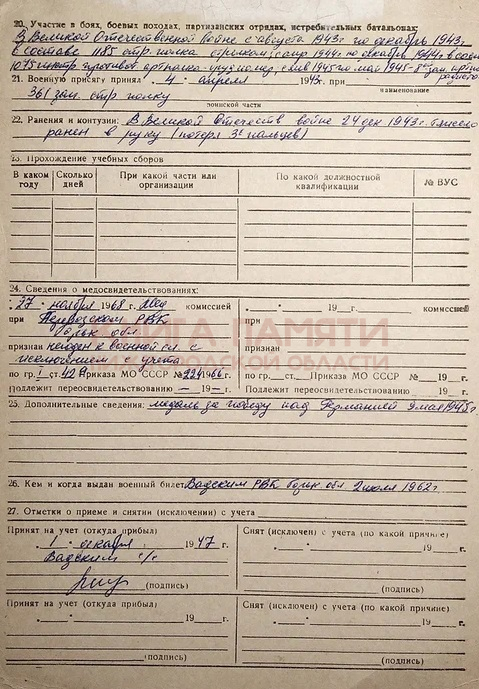 20. Участие в боях, боевых походах, партизанских отрядах, истребительных батальонах:
В Великой Отечественной войне с августа 1943г по декабрь 1943г
в составе 1185 стр. полка стрелком, 1944г по декабрь 1944г в сост
1075 истр. против арт полка 1945 по май 1945
21. Военную присягу принял 4 апреля 1943г. при
наименование
361 зап. стр. полку
воинской части
22. Ранения и контузии: В Великой Отечеств войне 24 дек 1943г. тяжело
ранен в руку (потеря 3х пальцев)
23. Прохождение учебных сборов
В каком году
Сколько дней
При какой части или организации
По какой должностной квалификации
№ ВУС
24. Сведения о медосвидетельствованиях:
"27" ноября 1968 г. комиссией
при Перевозском РВК
Горьк обл
признан негоден к военной сл. с
исключением с учета
по гр. I ст. 42 Приказа МО СССР № 224 1966 г.
Подлежит переосвидетельствованию — 19 — г.
" " 19 г. комиссией
при
признан
по гр. ст. Приказа МО СССР № 19 г.
Подлежит переосвидетельствованию 19 г.
КНИГА ПАМЯТИ
НИЖЕГОРОДСКОЙ ОБЛАСТИ
25. Дополнительные сведения: медаль за победу над Германией 9 мая 1945г
26. Кем и когда выдан военный билет Вадским РВК Горьк обл 2 июля 1962г
27. Отметки о приеме и снятии (исключении) с учета
Принят на учет (откуда прибыл)
1 декабря 1947 г.
Вадским с/с
(подпись)
Снят (исключен) с учета (по какой причине)
19 г.
(подпись)
Принят на учет (откуда прибыл)
19 г.
(подпись)
Снят (исключен) с учета (по какой причине)
19 г.
(подпись)